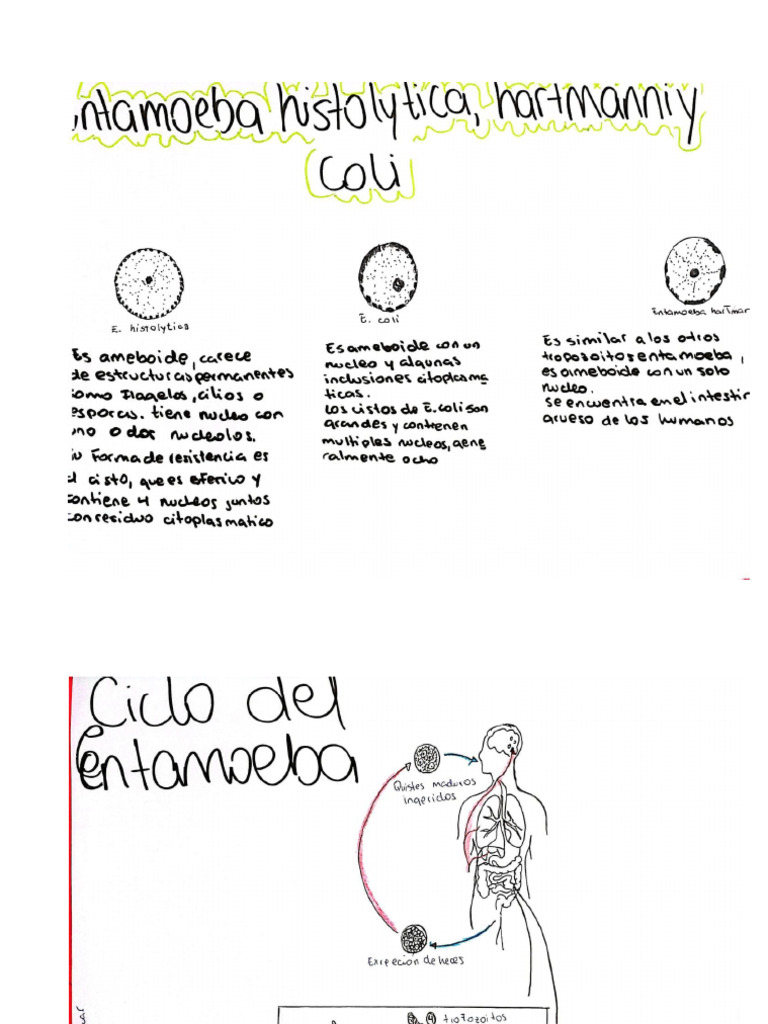 Entamoeba histolytica, hartmanni y
Coli
E. histolytica
E. coli
Entamoeba hartmar
Es ameboide, carece
de estructuras permanentes
como flagelos, cilios o
esporas. tiene nucleo con
uno o dos nucleolos.
su forma de resistencia es
el cisto, que es esferico y
contiene 4 nucleos juntos
con residuo citoplasmatico
Es ameboide con un
nucleo y algunas
inclusiones citoplasma
ticas.
Los cistos de E. coli son
grandes y contienen
multiples nucleos, gene
ralmente ocho
Es similar a los otros
tropozoitos entamoeba,
es ameboide con un solo
nucleo.
se encuentra en el intestin
grueso de los humanos
Ciclo del
Entamoeba
Quistes maduros
ingeridos
Excrecion de heces
trofozoitos